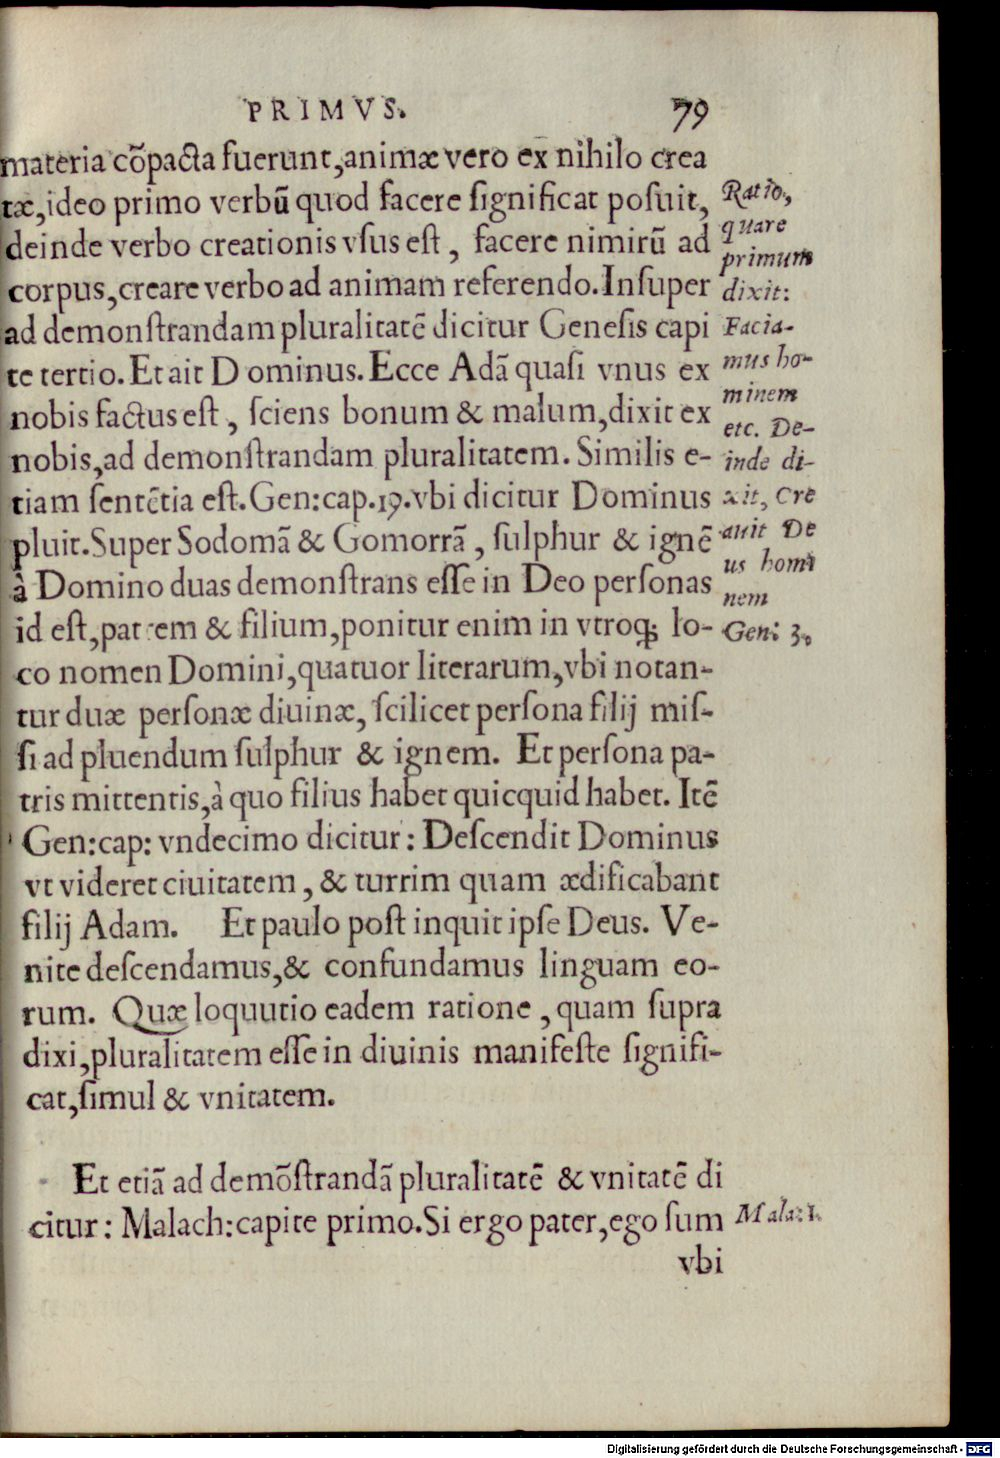 PRIMVS. 79
materia cõpacta fuerunt,animæ vero ex nihilo crea
tæ,ideo primo verbũ quod facere ſignificat poſuit,
deinde verbo creationis vſus eſt, facere nimirũ ad
corpus,creare verbo ad animam referendo.Inſuper
ad demonſtrandam pluralitatẽ dicitur Geneſis capi
te tertio. Et ait Dominus. Ecce Adã quaſi vnus ex
nobis factus eſt, ſciens bonum & malum,dixit ex
nobis,ad demonſtrandam pluralitatem. Similis e-
tiam ſentẽtia eſt.Gen:cap.19.vbi dicitur Dominus
pluit.Super Sodomã & Gomorrã, ſulphur & ignẽ
à Domino duas demonſtrans eſſe in Deo perſonas
id eſt,patrem & filium,ponitur enim in vtroq; lo-
co nomen Domini,quatuor literarum,vbi notan-
tur duæ perſonæ diuinæ, ſcilicet perſona filij miſ-
ſi ad pluendum ſulphur & ignem. Et perſona pa-
tris mittentis,à quo filius habet quicquid habet. Itẽ
Gen:cap: vndecimo dicitur: Deſcendit Dominus
vt videret ciuitatem, & turrim quam ædificabant
filij Adam. Et paulo poſt inquit ipſe Deus. Ve-
nite deſcendamus,& confundamus linguam eo-
rum. Quæ loquutio eadem ratione, quam ſupra
dixi,pluralitatem eſſe in diuinis manifeſte ſignifi-
cat,ſimul & vnitatem.
Et etiã ad demõſtrandã pluralitatẽ & vnitatẽ di
citur: Malach:capite primo.Si ergo pater,ego ſum
vbi
Ratio,
quare
primum
dixit:
Facia-
mus ho-
minem
etc. De-
inde di-
xit, Cre
auit De
us homi
nem
Gen: 3.
Mala: 1.
Digitalisierung gefördert durch die Deutsche Forschungsgemeinschaft - DFG